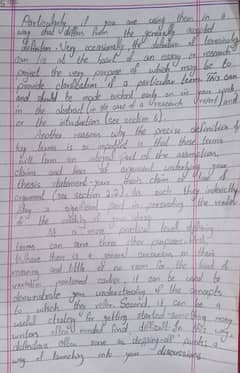 Particularly if you are using them in a
way that differs from the generally accepted
definition. Very occasionally, the definition of terminology
can lie at the heart of an essay or research
project the very purpose of which may be to
provide clarification of a particular term. This can
and should be made evident early on in your work,
in the abstract (in the case of a research project) and
or the introduction (see section 6).
Another reason why the precise definition of
key terms is so important is that these terms
will form an integral part of the assumption,
claims and lines of argument underlying your
thesis statement - your main claim or line of
argument (see section 2.2). As such they indirectly
play a significant part in persuading the reader
of the validity of your ideas.
At a more practical level, defining
terms can serve three other purposes. First,
where there is a general concurrence on their
meaning and little or no room for the kind of
variation mentioned earlier, it can be used to
demonstrate your understanding of the concepts
to which they refer. Second, it can be a
useful strategy for getting started - something many
writers often find difficult. In this way,
definitions often serve as stepping-off points a
way of launching into your discussions